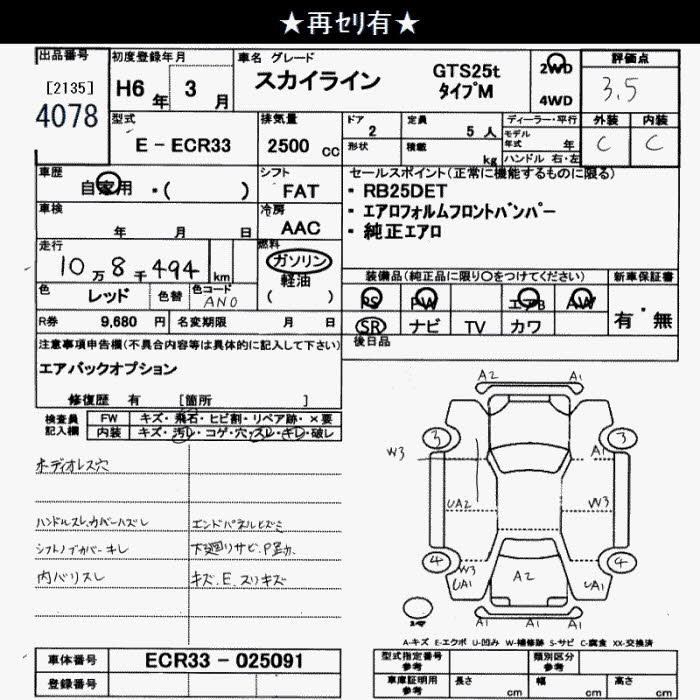 ★再セリ有★
出品番号
[2135]
4078
初度登録年月
H6年 3月
車名 グレード
スカイライン
GTS25t
タイプM
2WD
4WD
評価点
3.5
型式
E - ECR33
排気量
2500 cc
ドア
2
定員
5 人
形状
積載
kg
ディーラー・平行
モデル年式 年
ハンドル 右・左
外装
C
内装
C
車歴
自家用 ・( )
シフト
FAT
冷房
AAC
車検
年 月 日
セールスポイント(正常に機能するものに限る)
・ RB25DET
・ エアロフォルムフロントバンパー
・ 純正エアロ
走行
10万8千494 km
燃料
ガソリン
軽油
( )
色
レッド
色替
色コード
AN0
装備品(純正品に限り○をつけてください)
新車保証書
PS PW エアB AW
SR ナビ TV カワ
有・無
R券 9,680 円
名変期限 月 日
後日品
注意事項申告欄(不具合内容等は具体的に記入して下さい)
エアバックオプション
修復歴 有 [箇所 ]
検査員
記入欄
FW キズ・飛石・ヒビ割・リペア跡・×要
内装 キズ・汚レ・コゲ・穴・スレ・キレ・破レ
オーディオレス穴
ハンドルスレ.カバーハズレ
エンドパネルヒズミ
シフトノブカバーキレ
下廻りサビ.
内バリスレ
キズ.E.スリキズ
A2 A1
3 3
W3 A1
UA2 W3
4 4
W3
UA1 A2 UA1
A1 A1 A1
A-キズ E-エクボ U-凹み W-補修跡 S-サビ C-腐食 XX-交換済
車体番号 ECR33 - 025091
登録番号
型式指定番号
参考
類別区分
参考
車庫証明用
参考
長さ cm
幅 cm
高さ cm